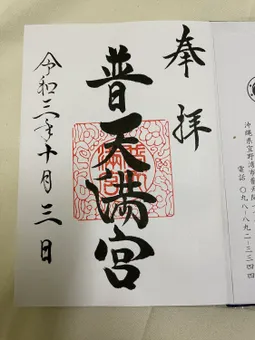 奉拝
普天満宮
令和三年十月三日
沖縄県宜野湾市普天間
電話 〇九八-八九二-三三四四